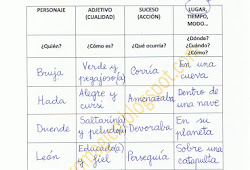 PERSONAJE ADJETIVO (CUALIDAD) SUCESO (ACCIÓN) LUGAR, TIEMPO, MODO...
¿Quién? ¿Cómo es? ¿Qué ocurría? ¿Dónde? ¿Cuándo? ¿Cómo?
Bruja Verde y pegajoso(a) Corría En una cueva
Hada Alegre y cursi Amenazaba Dentro de una nave
Duende Saltarín(a) y peludo(a) Devoraba En su planeta
León Educado(a) y fiel Perseguía Sobre una catapulta